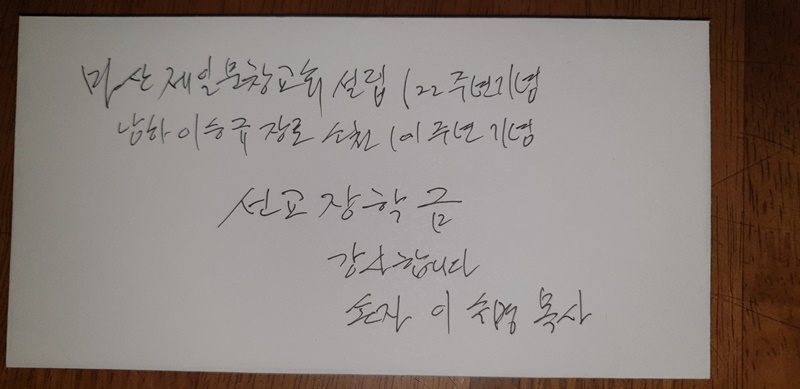 마산 제일문창교회 설립 122주년기념
남하 이승규 장로 소천 101주년 기념
선교 장학금
감사합니다
손자 이 목사